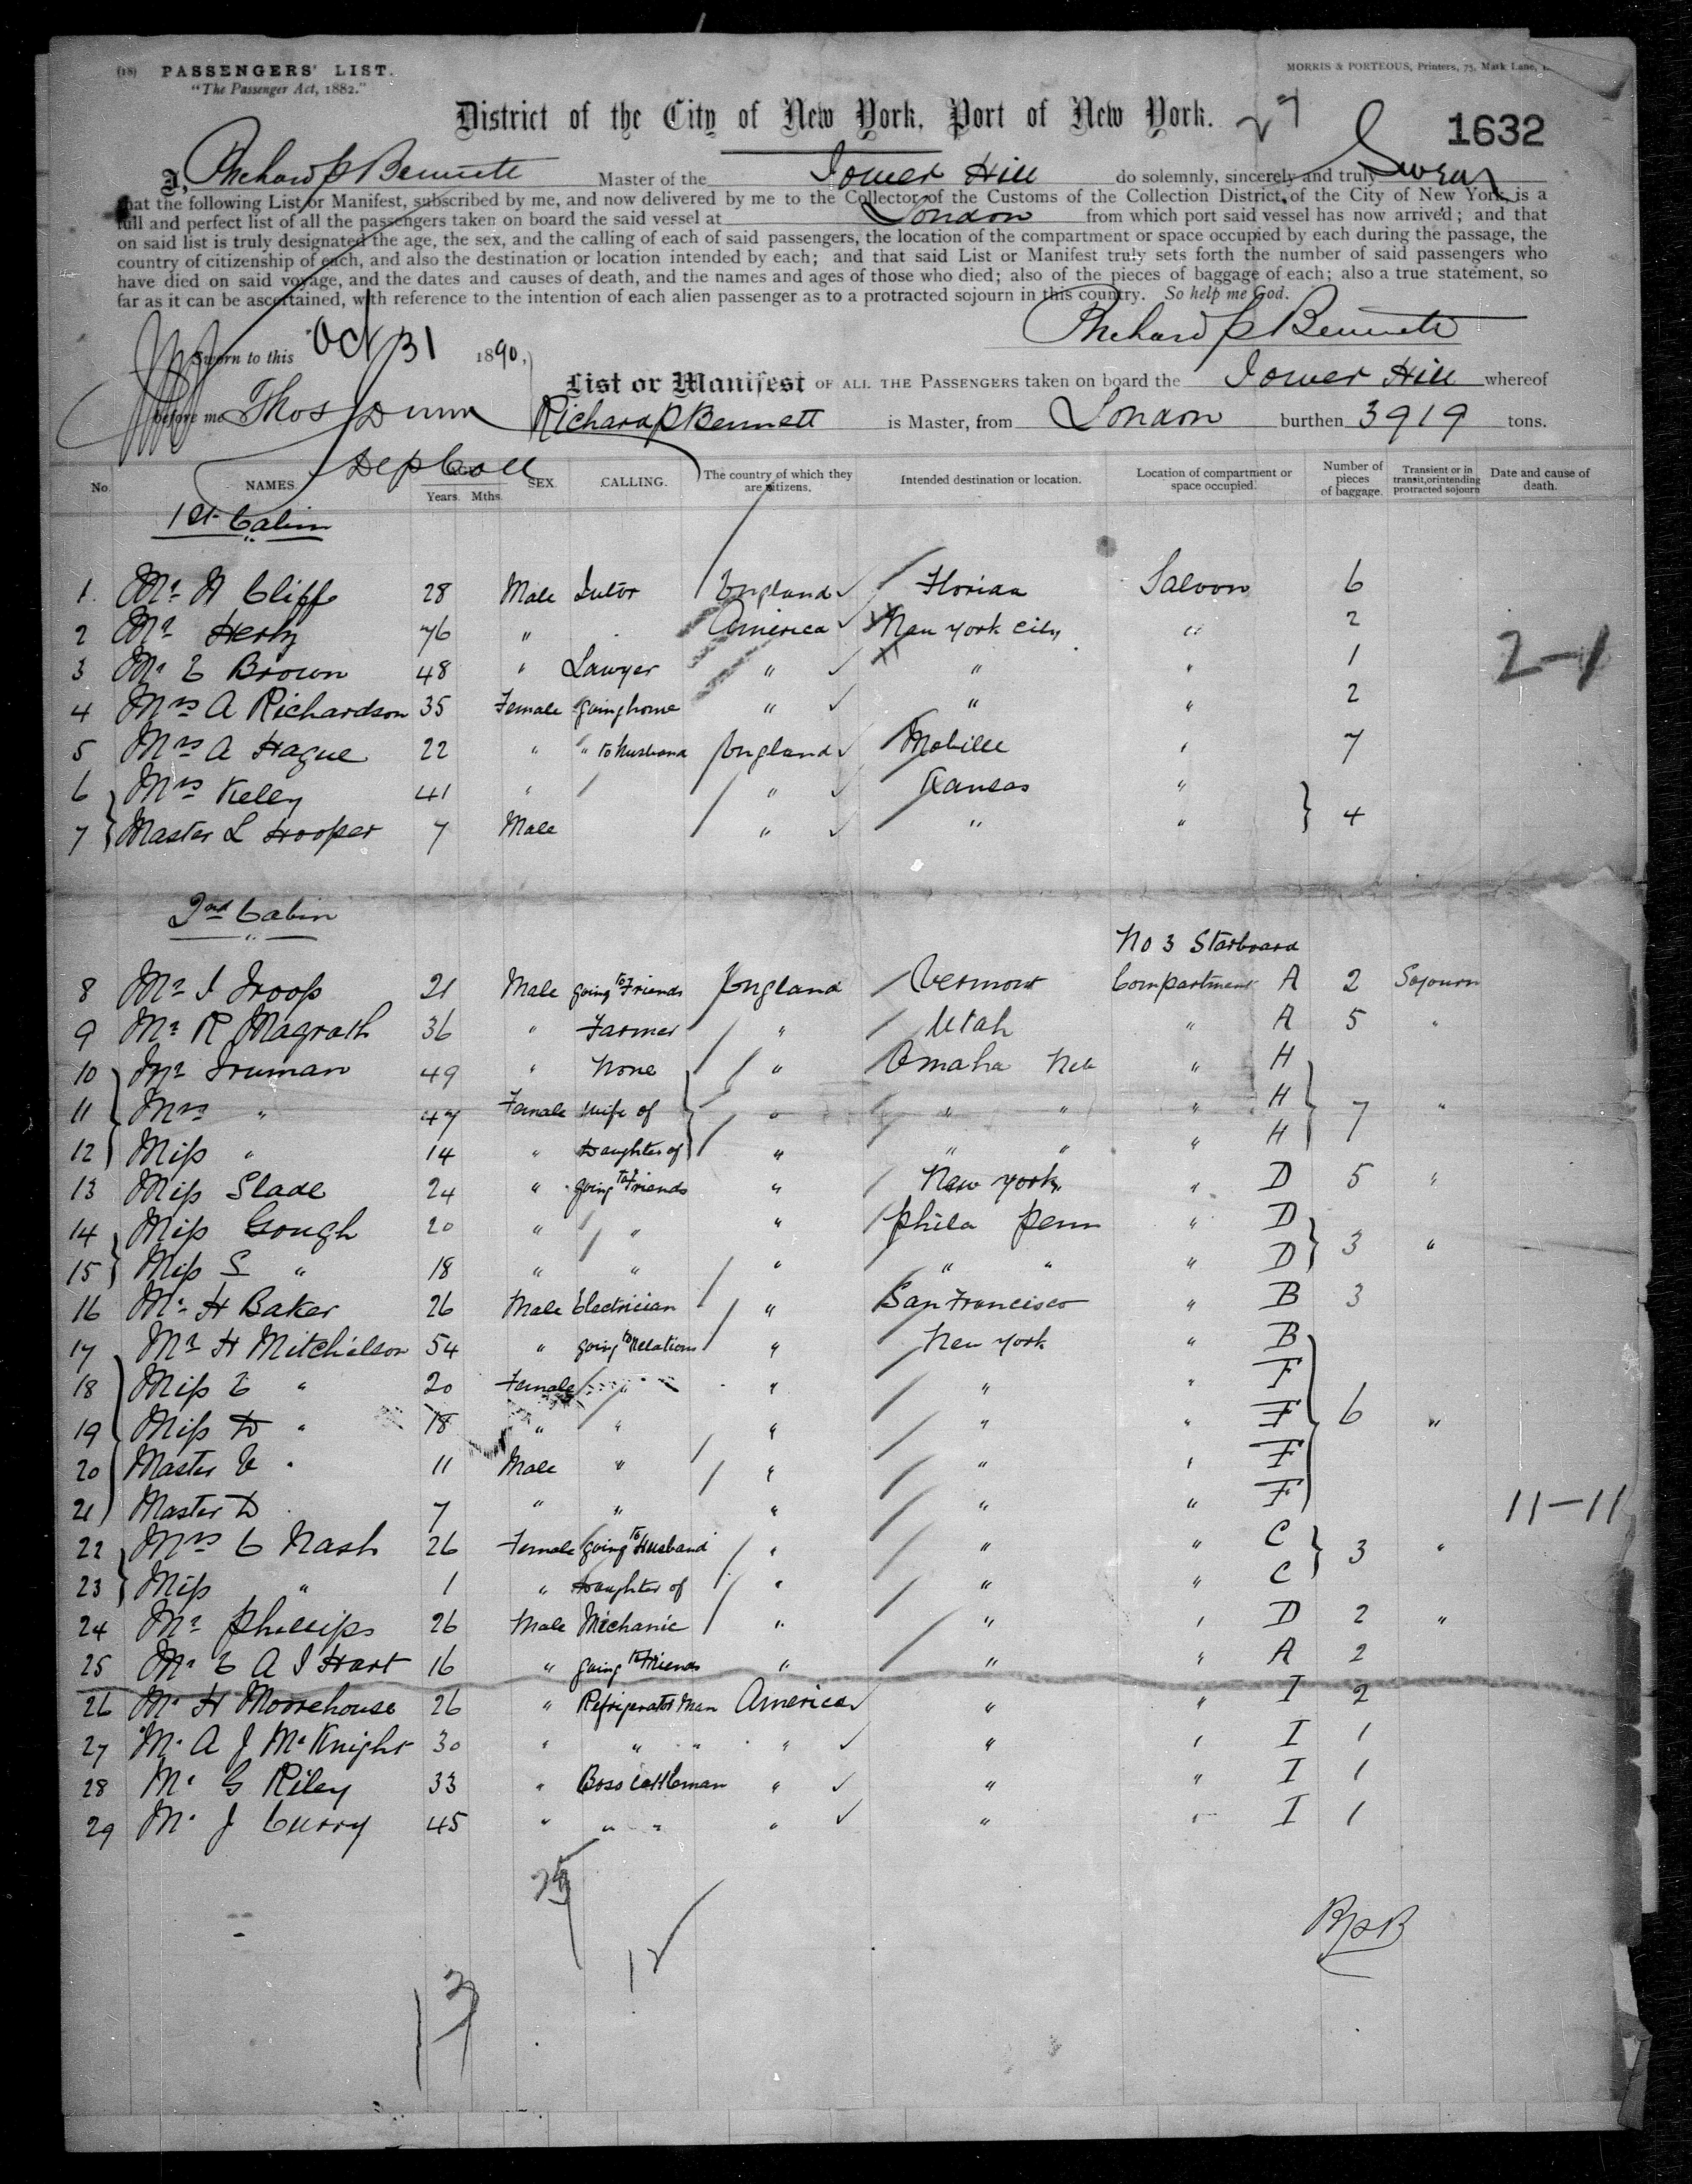 (18) PASSENGERS' LIST.
"The Passenger Act, 1882."
MORRIS & PORTEOUS, Printers, 75, Mark Lane,
District of the City of New York, Port of New York.
1632
I, Richard P Bennett Master of the Tower Hill do solemnly, sincerely and truly Swear
that the following List or Manifest, subscribed by me, and now delivered by me to the Collector of the Customs of the Collection District of the City of New York, is a
full and perfect list of all the passengers taken on board the said vessel at London from which port said vessel has now arrived; and that
on said list is truly designated the age, the sex, and the calling of each of said passengers, the location of the compartment or space occupied by each during the passage, the
country of citizenship of each, and also the destination or location intended by each; and that said List or Manifest truly sets forth the number of said passengers who
have died on said voyage, and the dates and causes of death, and the names and ages of those who died; also of the pieces of baggage of each; also a true statement, so
far as it can be ascertained, with reference to the intention of each alien passenger as to a protracted sojourn in this country. So help me God.
Richard P Bennett
Sworn to this Oct 31 1890,
List or Manifest OF ALL THE PASSENGERS taken on board the Tower Hill whereof
before me Thos Dunn Richard P Bennett is Master, from London burthen 3919 tons.
Dep Coll
No. NAMES. AGE. Years. Mths. SEX. CALLING. The country of which they are citizens. Intended destination or location. Location of compartment or space occupied. Number of pieces of baggage. Transient or in transit, or intending protracted sojourn Date and cause of death.
1st Cabin
1 Mr H Cliffe 28 Male Tutor England Florida Saloon 6
2 Mr Herby 76 " America New York City " 2
3 Mr E Brown 48 " Lawyer " " " 1
2-1
4 Mrs A Richardson 35 Female going home " " " 2
5 Mrs A Hague 22 " " to husband England Mobille " 7
6 Mrs Keley 41 " " Kansas "
7 Master L Hooper 7 Male " " " 4
2nd Cabin
No 3 Starboard
8 Mr I Troop 21 Male going to Friends England Vermont Compartment A 2 Sojourn
9 Mr R Magrath 36 " Farmer " Utah " A 5 "
10 Mr Truman 49 " None " Omaha Neb " H
11 Mrs " 47 Female Wife of " " " " H 7 "
12 Miss " 14 " Daughter of " " " " H
13 Miss Slade 24 " going to Friends " New York " D 5 "
14 Miss Gough 20 " " " Phila Penn " D
15 Miss S " 18 " " " " " " D 3 "
16 Mr H Baker 26 Male Electrician " San Francisco " B 3
17 Mr H Mitchelson 54 " going to Relations " New York " B
18 Miss E " 20 Female " " " " F
19 Miss D " 18 " " " " " F 6 "
20 Master " 11 Male " " " " F
21 Master D 7 " " " " " F
11-11
22 Mrs C Nash 26 Female going to Husband " " " C 3 "
23 Miss " 1 " Daughter of " " " C
24 Mr Phillips 26 Male Mechanic " " " D 2 "
25 Mr E A I Hart 16 " going to Friends " " " A 2
26 Mr H Moorehouse 26 " Refrigerator Man America " " I 2
27 Mr A J McKnight 30 " " " " " " I 1
28 Mr G Riley 33 " Boss Cattleman " " " I 1
29 Mr J Curry 45 " " " " " " I 1
12
RPB